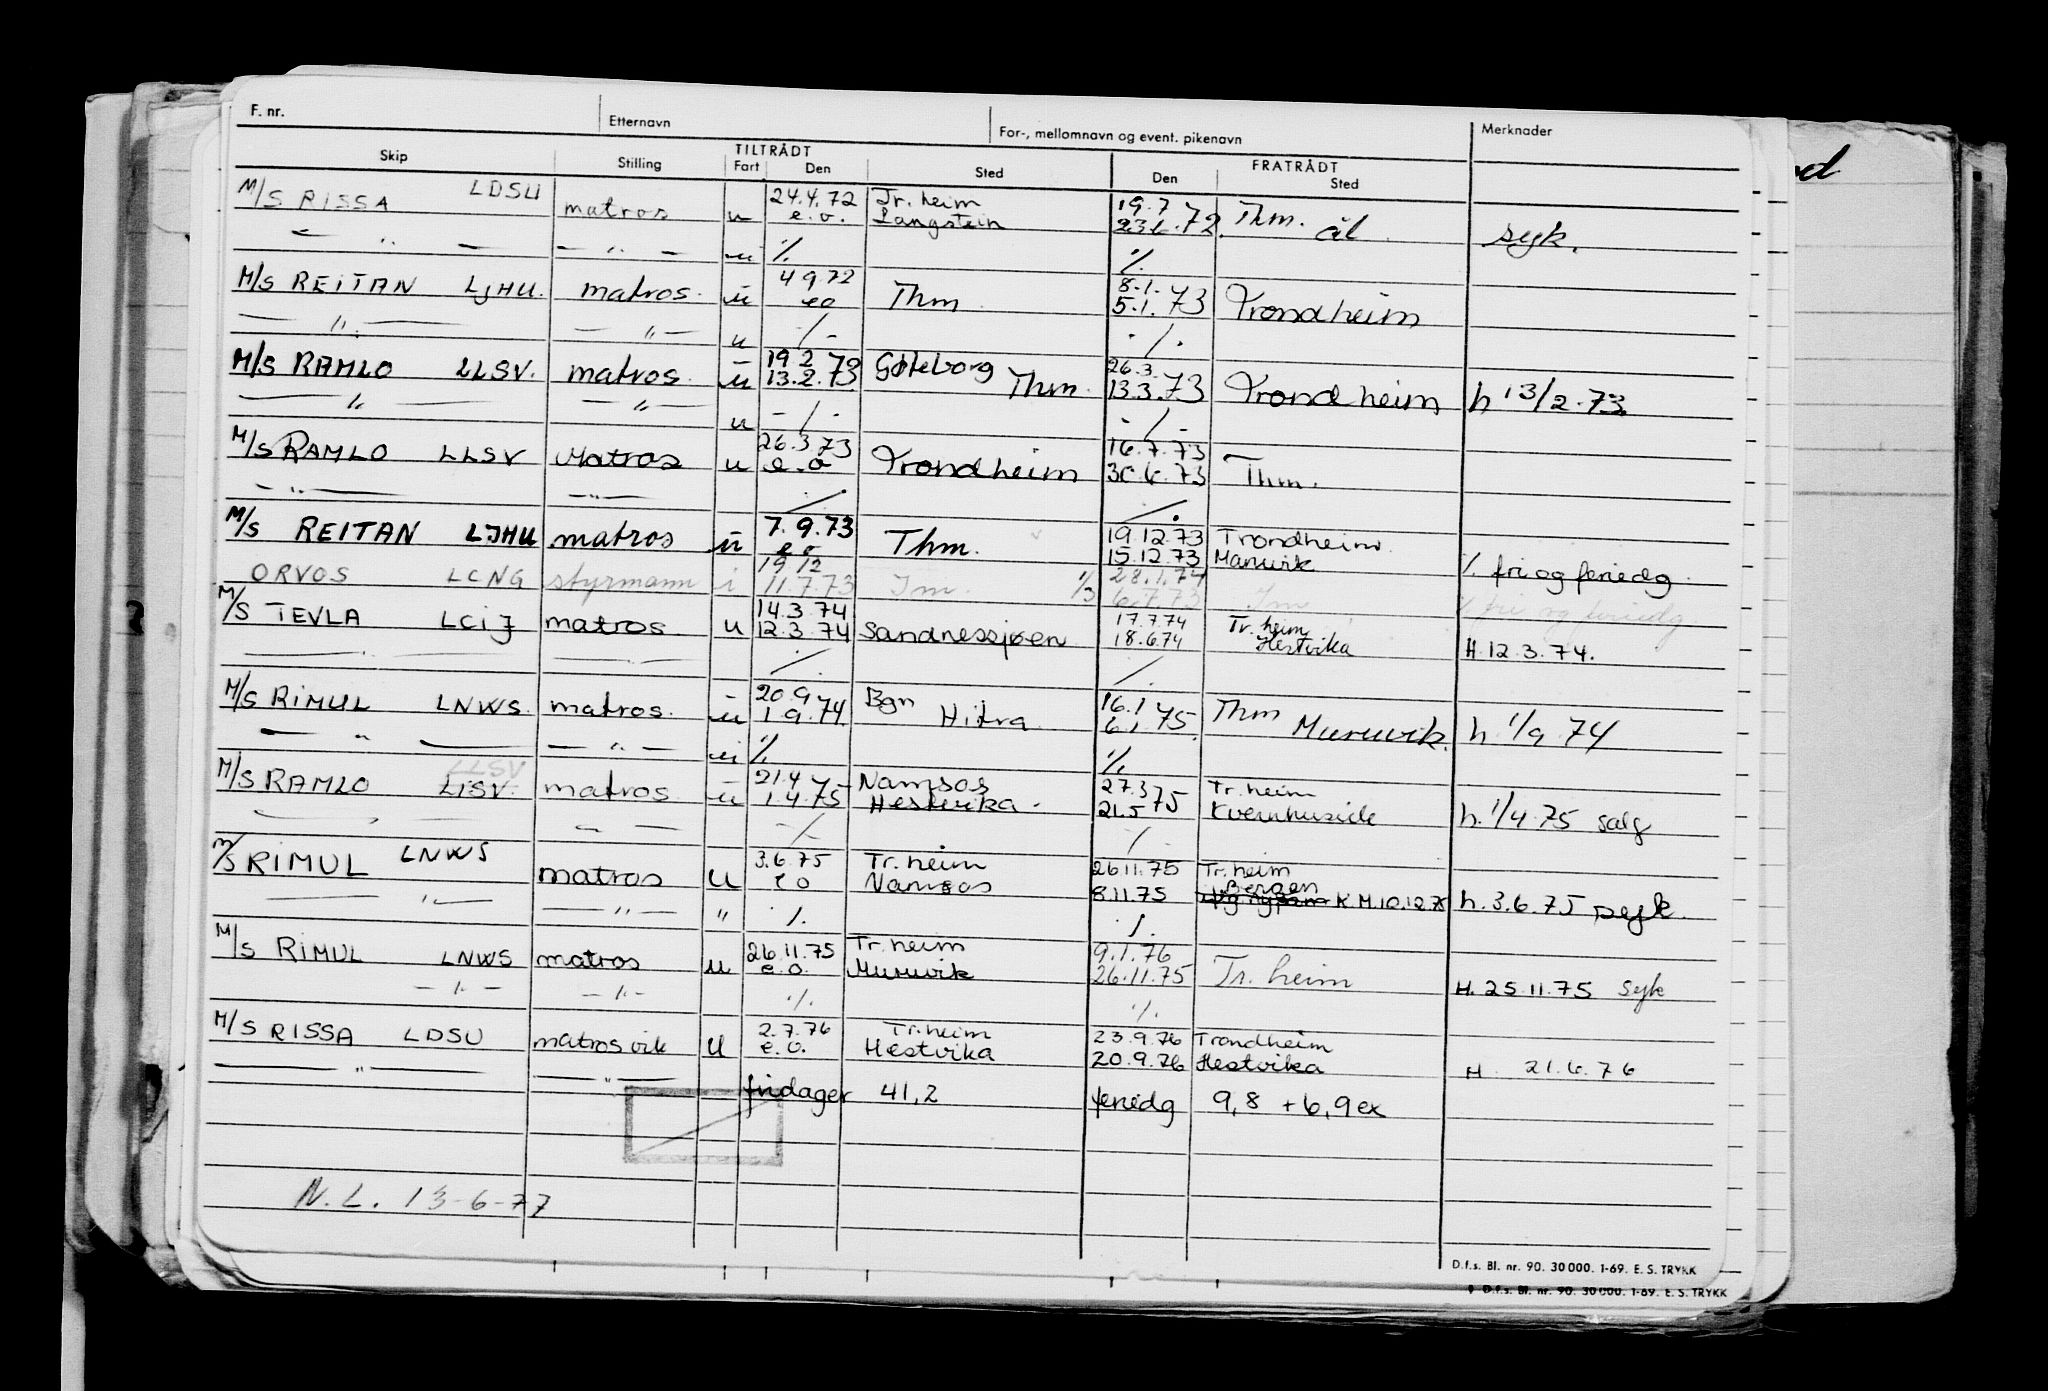 F. nr. Etternavn For-, mellomnavn og event. pikenavn Merknader
TILTRÅDT FRATRÅDT
Skip Stilling Fart Den Sted Den Sted
M/S RISSA LDSU matros u 24.4.72 e.o. Tr.heim Langstein 19.7 23.6.72. Thm. ål syk.
— " — — " — u ٪ ٪
M/S REITAN LJHU. matros. u 4 9.72 eo Thm. 8.1. 5.1.73 Trondheim
— " — — " — u -/- -/-
M/S RAMLO LLSV. matros. u 19.2 13.2.73 Gøteborg Thm. 26.3. 13.3.73 Trondheim h 13/2.73.
— " — — " — u -/- -/-
M/S RAMLO LLSV Matros u 26.3.73 e.o Trondheim 16.7.73 30.6.73 Thm.
— " — — " — ./. ./.
M/S REITAN LJHU matros u 7.9.73 e o Thm. 19.12.73 15.12.73 Trondheim. Muruvik ٪ fri og feriedg.
ORVOS LCNG styrmann i 19 12 11.7.73 Tm. 1/3 28.1.74 6.7.73 Tm ٪ fri og feriedg
M/S TEVLA LCIJ matros u 14.3.74 12.3.74 Sandnessjøen 17.7.74 18.6.74 Tr.heim Hestvika H.12.3.74.
— " — — " — ./. ./.
M/S RIMUL LNWS. matros. u 20.9 1 9.74 Bgn Hitra 16.1 6.1 75. Thm Muruvik. h. 1/9 74
— " — — " — u ٪ ٪
LLSV
M/S RAMLO LISV. matros u 21.4 1.4.75 Namsos Hestvika. 27.3 21.5 75 Tr.heim h. 1/4.75 salg
— " — — " — -/- ./.
M/S RIMUL LNWS matros u 3.6.75 e o Tr.heim Namsos 26.11.75 8.11.75 Tr.heim Bergen K M.10.12.75 h.3.6.75
— " — — " — " ٪ ٪
M/S RIMUL LNWS matros u 26.11.75 e.o. Tr.heim Muruvik 9.1.76 26.11.75 Tr.heim H.25.11.75 syk
— " — — " — ٪ ٪
M/S RISSA LDSU matros vik u 2.7.76 e.o. Tr.heim Hestvika 23.9.76 20.9.76 Trondheim Hestvika H. 21.6.76
— " — — " —
fridager 41,2 feriedg 9,8 + 6,9 ex
N.L. 13-6-77
D.f.s. Bl. nr. 90. 30 000. 1-69. E. S. TRYKK
D.f.s. Bl. nr. 90. 30 000. 1-69. E. S. TRYKK